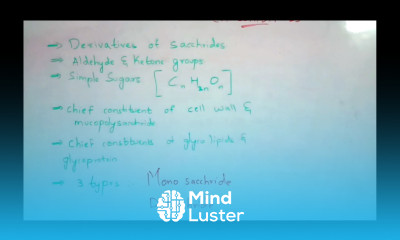 → Derivatives of sacchrides.
→ Aldehyde & Ketone groups
→ Simple Sugars [ Cn H2n On ]
→ Chief constituent of cell wall &
mucopolysacchride
→ Chief constituents of glyco lipids &
glycoprotein
→ 3 types Mono sacchride
Mind
Luster